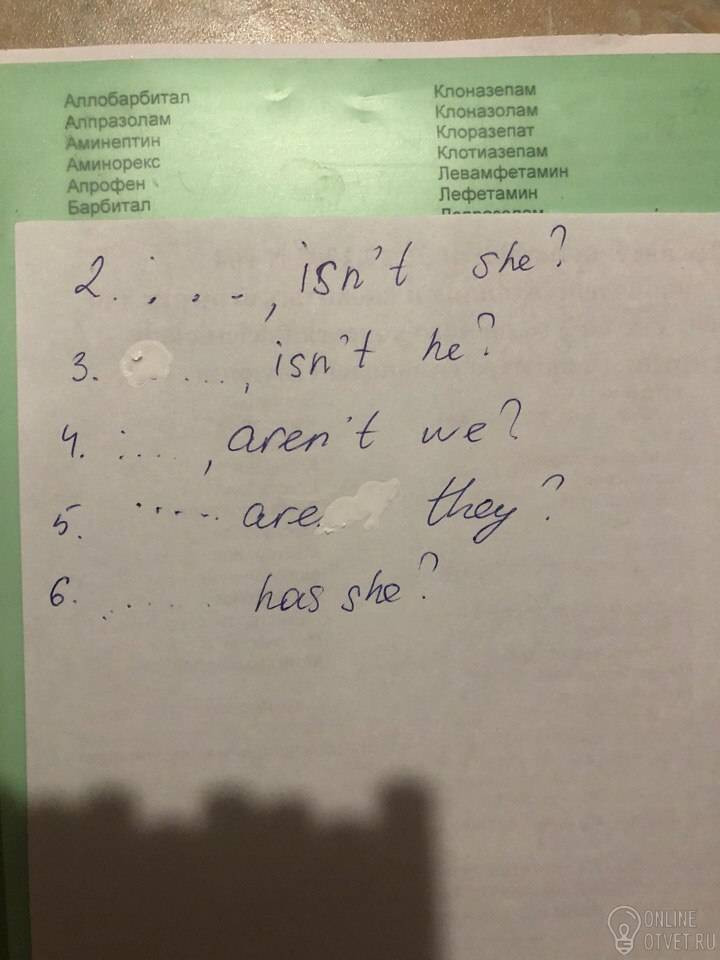 Аллобарбитал
Алпразолам
Аминептин
Аминорекс
Апрофен
Барбитал
Клоназепам
Клоназолам
Клоразепат
Клотиазепам
Левамфетамин
Лефетамин
2. ....., isn't she?
3. ....., isn't he?
4. ....., aren't we?
5. ..... are they?
6. ...... has she?
ONLINE
OTVET.RU